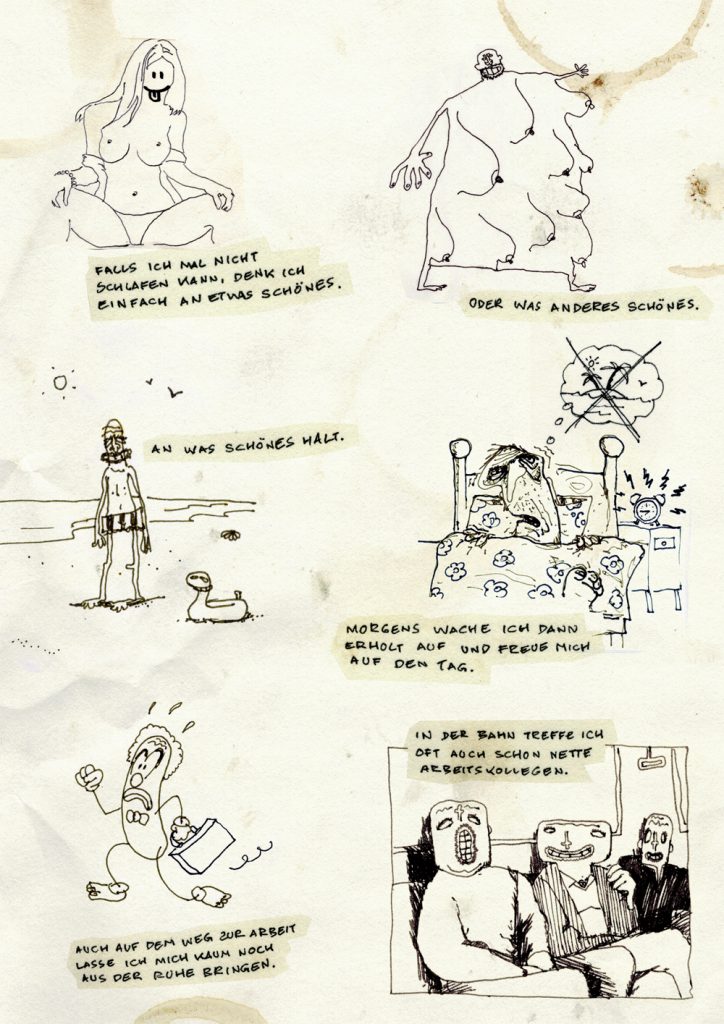 FALLS ICH MAL NICHT
SCHLAFEN KANN, DENK ICH
EINFACH AN ETWAS SCHÖNES.
ODER WAS ANDERES SCHÖNES.
AN WAS SCHÖNES HALT.
MORGENS WACHE ICH DANN
ERHOLT AUF UND FREUE MICH
AUF DEN TAG.
AUCH AUF DEM WEG ZUR ARBEIT
LASSE ICH MICH KAUM NOCH
AUS DER RUHE BRINGEN.
IN DER BAHN TREFFE ICH
OFT AUCH SCHON NETTE
ARBEITSKOLLEGEN.